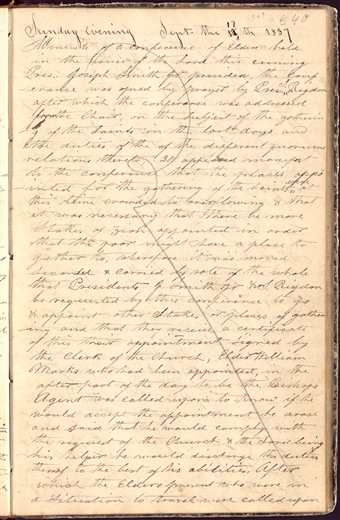 Sunday Evening Sept. the 17th 1837
Minutes of a conference of Elders held
in the house of the Lord this evening
Pres. Joseph Smith Jr. presided, the Conf
erence was opened by prayer by Presn. Rigdon
after which the conference was addressed
from the Chair, on the subject of the gatherin
g of the Saints in the last days and
the duties of the of the different quorums
relations thereto. It appeared manifest
to the conference that the places appo
inted for the gathering of the Saints at
this time crouded to overflowing & that
it was necessary that there be more
Stakes of Zion appointed in order
that the poor might have a place to
gather to, wherefore it was moved
seconded & carried by vote of the whole
that Presidents J. Smith Jr & S. Rigdon
be requested by this conference to go
& appoint other Stakes, or places of gather
ing and that they receive a certificate
of this their appointment, signed by
the Clerk of the Church, Elder William
Marks who had been appointed, in the
after part of the day to be the Bishops
Agent was called upon to know if he
would accept the appointment he arose
and said that he would comply with
the request of the Church & the Lord being
his helper he would discharge the duties
thereof to the best of his abilities, After
which the Elders present who were in
a Situation to travel were called upon